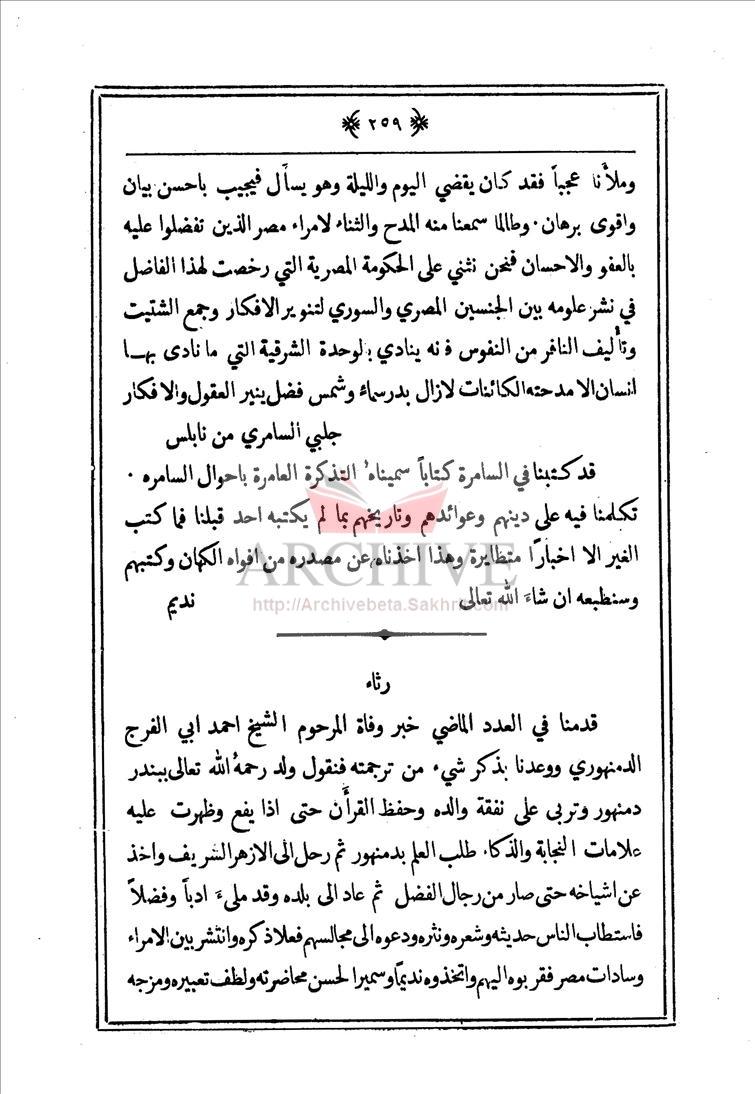 ﴿ ٢٥٩ ﴾
وملأنا عجباً فقد كان يقضي اليوم والليلة وهو يسأل فيجيب باحسن بيان
واقوى برهان . وطالما سمعنا منه المدح والثناء لامراء مصر الذين تفضلوا عليه
بالعفو والاحسان فنحن نثني على الحكومة المصرية التي رخصت لهذا الفاضل
في نشر علومه بين الجنسين المصري والسوري لتنوير الافكار وجمع الشتيت
وتأليف النافر من النفوس فانه ينادي بالوحدة الشرقية التي ما نادى بها
انسان الا مدحته الكائنات لازال بدر سماء وشمس فضل ينير العقول والافكار
جلبي السامري من نابلس
قد كتبنا في السامرة كتاباً سميناه التذكرة العامرة باحوال السامره .
تكلمنا فيه على دينهم وعوائدهم وتاريخهم بما لم يكتبه احد قبلنا فما كتب
الغير الا اخبارًا متطايرة وهذا اخذناه عن مصدره من افواه الكهان وكتبهم
وسنطبعه ان شاء الله تعالى نديم
ARCHIVE
http://Archivebeta.Sakhrit.com
رثاء
قدمنا في العدد الماضي خبر وفاة المرحوم الشيخ احمد ابي الفرج
الدمنهوري ووعدنا بذكر شيء من ترجمته فنقول ولد رحمهُ الله تعالى ببندر
دمنهور وتربى على نفقة والده وحفظ القرآن حتى اذا يفع وظهرت عليه
علامات النجابة والذكاء طلب العلم بدمنهور ثم رحل الى الازهر الشريف واخذ
عن اشياخه حتى صار من رجال الفضل ثم عاد الى بلده وقد ملىء ادباً وفضلاً
فاستطاب الناس حديثه وشعره ونثره ودعوه الى مجالسهم فعلا ذكره وانتشر بين الامراء
وسادات مصر فقربوه اليهم واتخذوه نديمًا وسميرا لحسن محاضرته ولطف تعبيره ومزجه